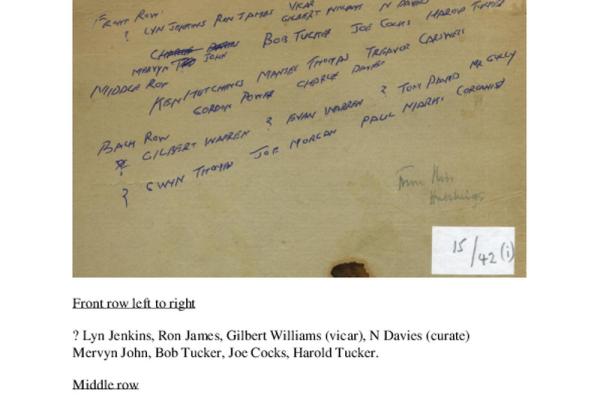 FRONT ROW.
? LYN JENKINS RON JAMES VICAR GILBERT N DAVIES
MERVYN JOHN BOB TUCKER JOE COCKS HAROLD TUCKER
MIDDLE ROW
KEN HUTCHINGS MANSEL THOMAS TREAVOR CARSWELL
GORDON POWER CHARLIE DAVIES
BACK ROW
? GILBERT WARREN ? EVAN WARREN ? TOM DAVID MR GULLY
? GWYN THOMAS JOE MORGAN PAUL
From Miss
Hutchings
15/42 (i)
Front row left to right
? Lyn Jenkins, Ron James, Gilbert Williams (vicar), N Davies (curate)
Mervyn John, Bob Tucker, Joe Cocks, Harold Tucker.
Middle row